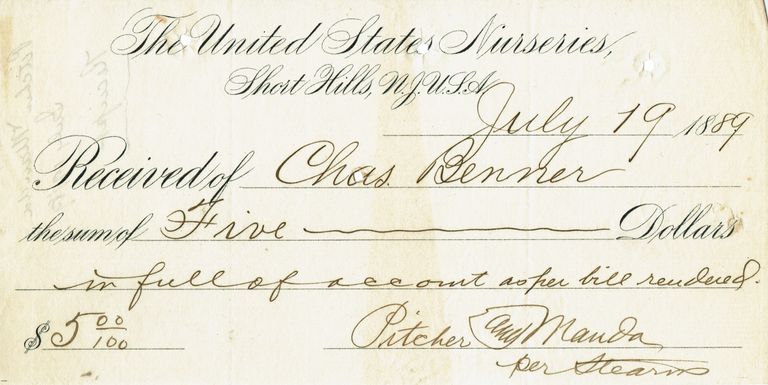 The United States Nurseries,
Short Hills, N.J. U.S.A.
July 19 1889
Received of Chas. Benner
the sum of Five Dollars
in full of account as per bill rendered.
$ 5 00/100 Pitcher and Manda
per Stearns